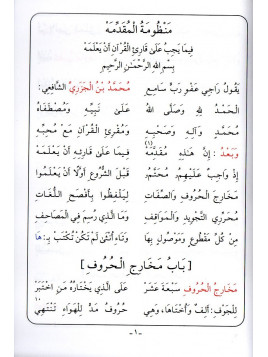 مَنْظُومَةُ الْمُقَدِّمَة
فِيمَا يَجِبُ عَلَى قَارِئِ الْقُرْآنِ أَنْ يَعْلَمَهُ
بِسْمِ اللهِ الرَّحْمَٰنِ الرَّحِيمِ
يَقُولُ رَاجِي عَفْوِ رَبٍّ سَامِعِ مُحَمَّدُ بْنُ الْجَزَرِيِّ الشَّافِعِي:
الْحَمْدُ لِلَّهِ وَصَلَّى اللهُ عَلَى نَبِيِّهِ وَمُصْطَفَاهُ
مُحَمَّدٍ وَآلِهِ وَصَحْبِهِ وَمُقْرِئِ الْقُرْآنِ مَعْ مُحِبِّهِ
وَبَعْدُ: إِنَّ هَٰذِهِ مُقَدِّمَهْ (١) فِيمَا عَلَى قَارِئِهِ أَنْ يَعْلَمَهْ
إِذْ وَاجِبٌ عَلَيْهِمُ مُحَتَّمُ قَبْلَ الشُّرُوعِ أَوَّلًا أَنْ يَعْلَمُوا
مَخَارِجَ الْحُرُوفِ وَالصِّفَاتِ لِيَلْفِظُوا بِأَفْصَحِ اللُّغَاتِ
مُحَرِّرِي التَّجْوِيدِ وَالْمَوَاقِفِ وَمَا الَّذِي رُسِمَ فِي الْمَصَاحِفِ
مِنْ كُلِّ مَقْطُوعٍ وَمَوْصُولٍ بِهَا وَتَاءِ أُنْثَى لَمْ تَكُنْ تُكْتَبْ بِ: هَا
[ بَابُ مَخَارِجِ الْحُرُوفِ ]
مَخَارِجُ الْحُرُوفِ سَبْعَةَ عَشَرْ عَلَى الَّذِي يَخْتَارُهُ مَنِ اخْتَبَرْ
لِلْجَوْفِ: أَلِفٌ وَأُخْتَاهَا، وَهِي حُرُوفُ مَدٍّ لِلْهَوَاءِ تَنْتَهِي
- ١ -